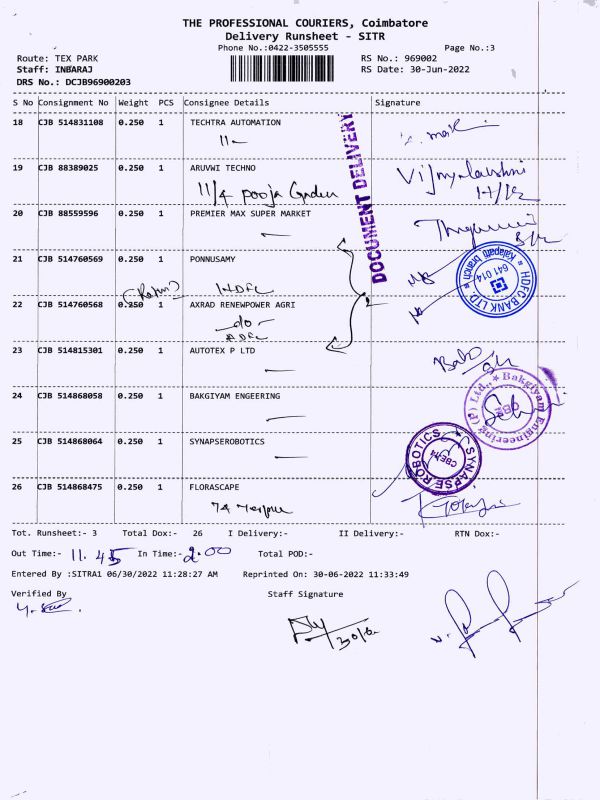 THE PROFESSIONAL COURIERS, Coimbatore
Delivery Runsheet - SITR
Phone No.:0422-3505555
Page No.:3
Route: TEX PARK
RS No.: 969002
Staff: INBARAJ
RS Date: 30-Jun-2022
DRS No.: DCJB96900203
S No Consignment No Weight PCS Consignee Details Signature
18 CJB 514831108 0.250 1 TECHTRA AUTOMATION
19 CJB 88389025 0.250 1 ARUVWI TECHNO
Vijayalakshmi
11/4 Pooja Garden
20 CJB 88559596 0.250 1 PREMIER MAX SUPER MARKET
DOCUMENT DELIVERY
21 CJB 514760569 0.250 1 PONNUSAMY
HDFC
HDFC BANK LTD.
Kalapatti branch
641 014
22 CJB 514760568 0.250 1 AXRAD RENEWPOWER AGRI
do
23 CJB 514815301 0.250 1 AUTOTEX P LTD
24 CJB 514868058 0.250 1 BAKGIYAM ENGEERING
Bakgiyam Engineering (P) Ltd.,
CBE
25 CJB 514868064 0.250 1 SYNAPSEROBOTICS
SYNAPSE ROBOTICS
CBE-14
26 CJB 514868475 0.250 1 FLORASCAPE
74
Tot. Runsheet:- 3 Total Dox:- 26 I Delivery:- II Delivery:- RTN Dox:-
Out Time:- 11.45 In Time:- 2.00 Total POD:-
Entered By :SITRA1 06/30/2022 11:28:27 AM Reprinted On: 30-06-2022 11:33:49
Verified By Staff Signature
30/6